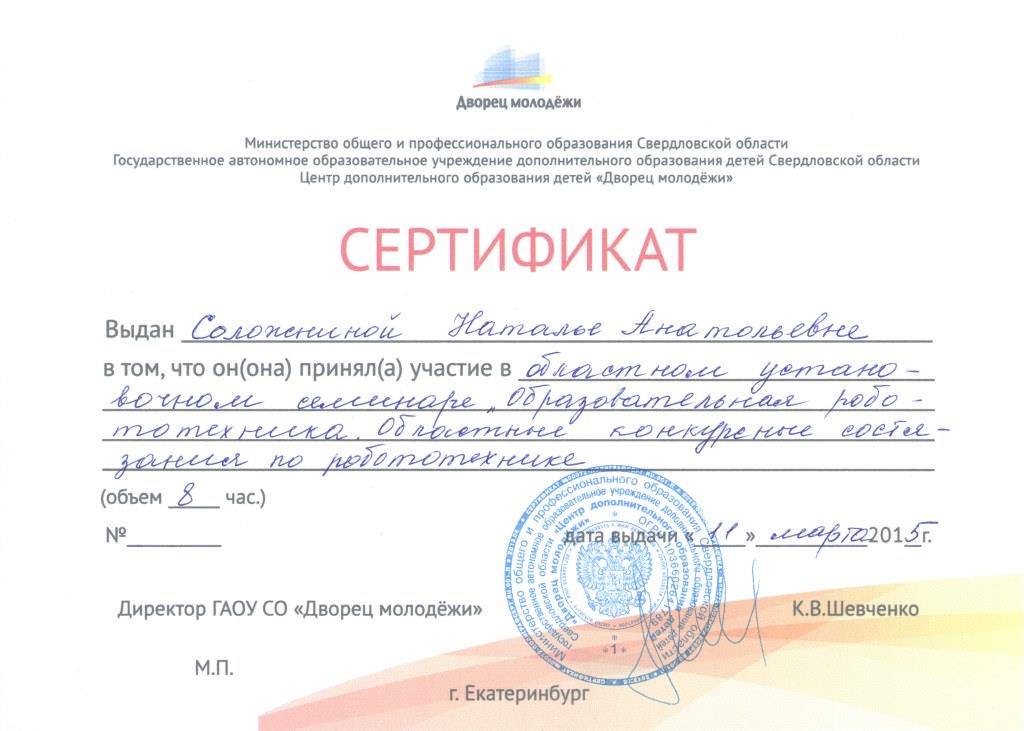 Дворец молодёжи
Министерство общего и профессионального образования Свердловской области
Государственное автономное образовательное учреждение дополнительного образования детей Свердловской области
Центр дополнительного образования детей «Дворец молодёжи»
СЕРТИФИКАТ
Выдан Соложниной Наталье Анатольевне
в том, что он(она) принял(а) участие в областном устано-
вочном семинаре „Образовательная робо-
тотехника. Областные конкурсные состя-
зания по робототехнике
(объем 8 час.)
№ дата выдачи « 11 » марта 2015 г.
Директор ГАОУ СО «Дворец молодёжи» К.В.Шевченко
М.П.
г. Екатеринбург
Министерство общего и профессионального образования Свердловской области
Государственное автономное образовательное учреждение дополнительного образования детей
Свердловской области «Центр дополнительного образования детей
«Дворец молодёжи»
ОГРН
*1*